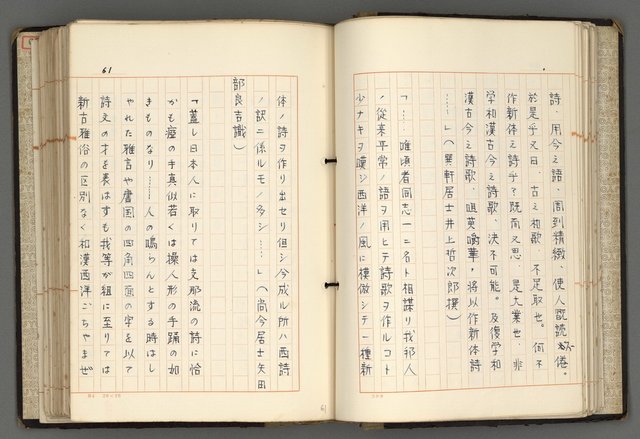 詩、用今之語、周到精緻、使人翫読不倦。
於是乎又曰、古之和歌、不足取也、何不
作新体之詩乎？既而又思、是大業也、非
学和漢古今之詩歌、決不可能。及復学和
漢古今之詩歌、咀英嚼華、将以作新体詩
……」（巽軒居士井上哲次郎撰）
「……唯頃者同志一二名ト相謀リ我邦人
ノ従来平常ノ語ヲ用ヒテ詩歌ヲ作ルコト
少ナキヲ嘆ジ西洋ノ風ニ模倣シテ一種新
61
体ノ詩ヲ作リ出セリ但シ今成ル所ハ西詩
ノ訳ニ係ルモノ多シ……」（尚今居士矢田
部良吉識）
「蓋し日本人に取りては支那流の詩に恰
かも瘂の手真似若くは操人形の手踊の如
きものなり……人の鳴らんとする時はし
やれた雅言や唐国の四角四面の字を以て
詩文の才を表はすも我等が組に至りては
新古雅俗の区別なく和漢西洋ごちやまぜ
61